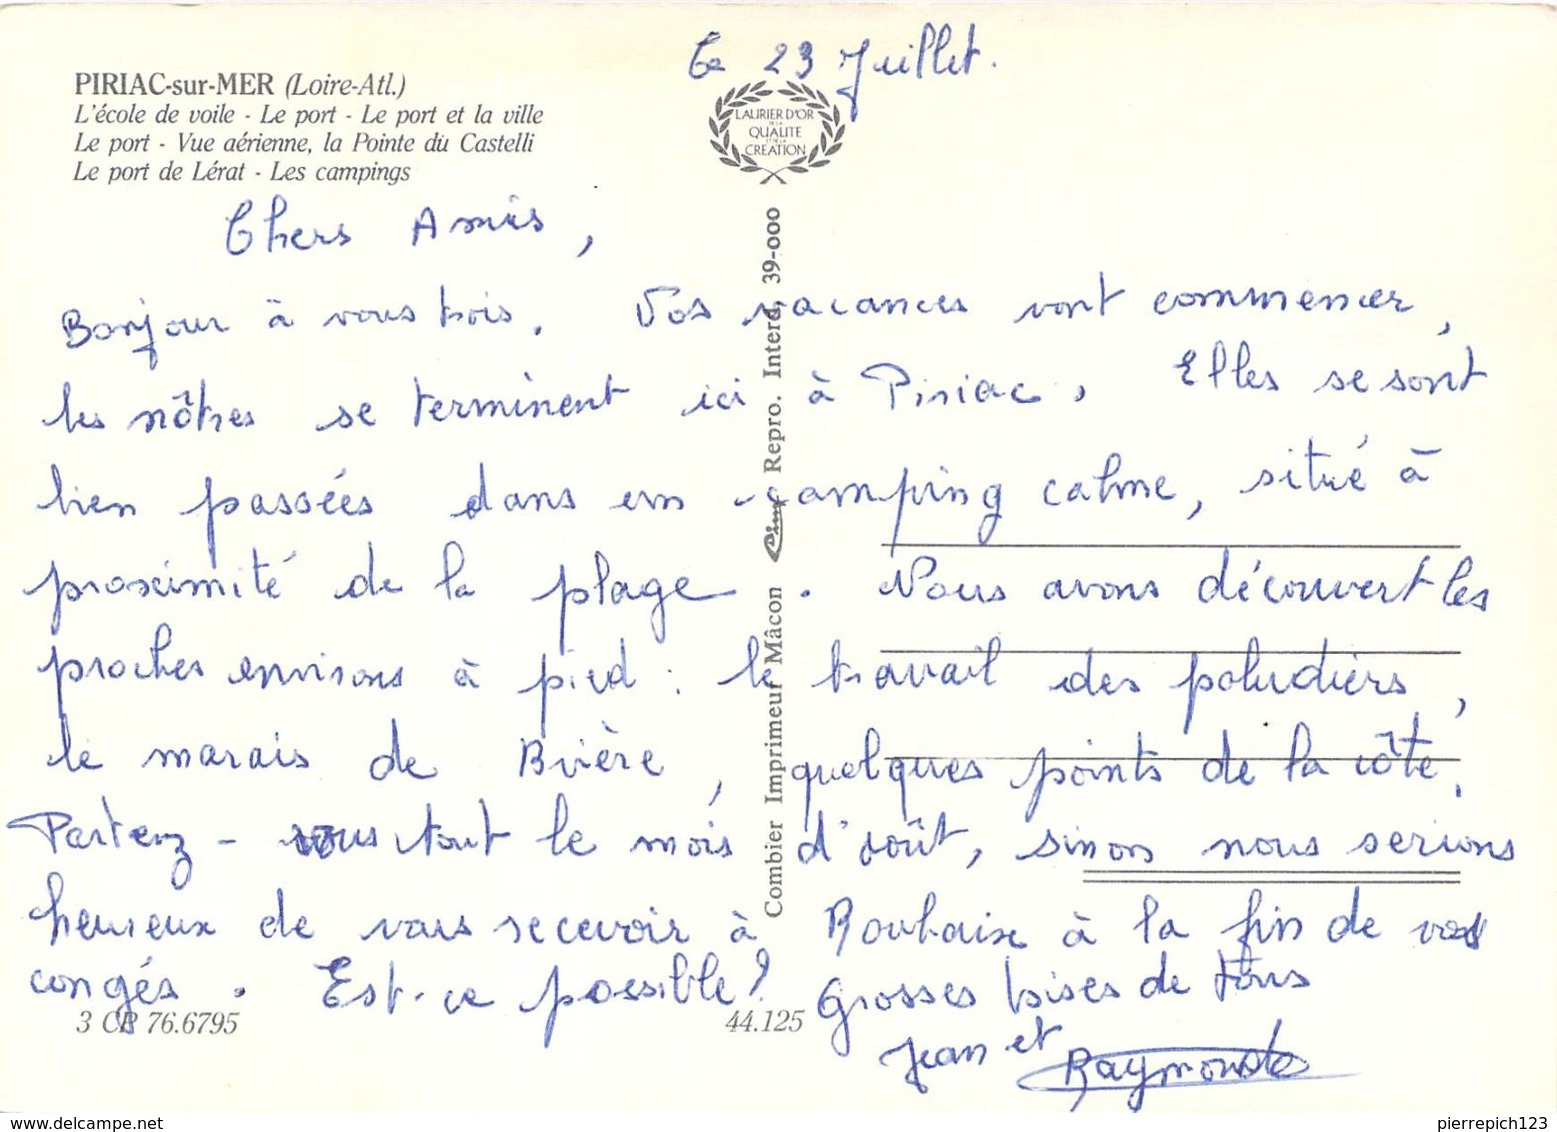 Le 23 Juillet.
PIRIAC-sur-MER (Loire-Atl.)
L'école de voile - Le port - Le port et la ville
Le port - Vue aérienne, la Pointe du Castelli
Le port de Lérat - Les campings
LAURIER D'OR
DE LA
QUALITE
ET DE LA
CREATION
Chers Amis,
Bonjour à vous trois. Vos vacances vont commencer,
les nôtres se terminent ici à Piriac. Elles se sont
bien passées dans un camping calme, situé à
proximité de la plage. Nous avons découvert les
proches environs à pied : le travail des paludiers,
le marais de Brière, quelques points de la côte.
Partez-vous tout le mois d'août, sinon nous serions
heureux de vous recevoir à Roubaix à la fin de vos
congés. Est-ce possible? Grosses bises de tous
Jean et Raymonde
Combier Imprimeur Mâcon Cim Repro. Interd. 39-000
3 CP 76.6795
44.125
www.delcampe.net
pierrepich123